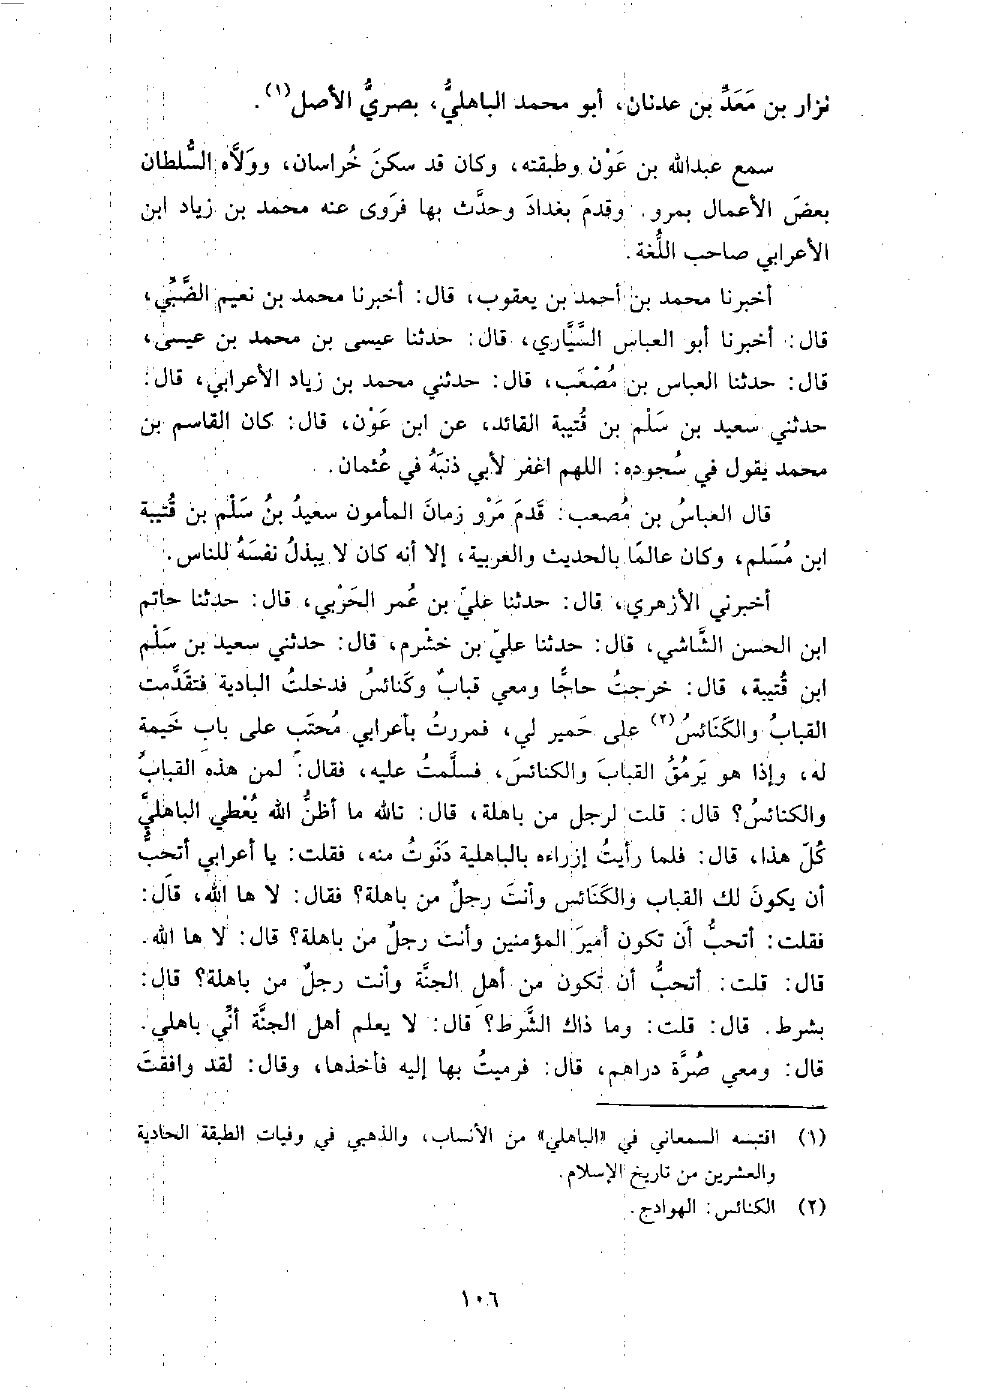 نزار بن مَعَدِّ بن عدنان، أبو محمد الباهليُّ، بصريُّ الأصل(١).
سمع عبدالله بن عَوْن وطبقته، وكان قد سكنَ خُراسان، وولَّاه السُّلطان
بعضَ الأعمال بمرو. وقدمَ بغدادَ وحدَّث بها فرَوى عنه محمد بن زياد ابن
الأعرابي صاحب اللُّغة.
أخبرنا محمد بن أحمد بن يعقوب، قال: أخبرنا محمد بن نعيم الضَّبِّي،
قال: أخبرنا أبو العباس السَّيَّاري، قال: حدثنا عيسى بن محمد بن عيسى،
قال: حدثنا العباس بن مُصْعَب، قال: حدثني محمد بن زياد الأعرابي، قال:
حدثني سعيد بن سَلْم بن قُتيبة القائد، عن ابن عَوْن، قال: كان القاسم بن
محمد يقول في سُجوده: اللهم اغفر لأبي ذنبَهُ في عُثمان.
قال العباسُ بن مُصعب: قَدمَ مَرْو زمانَ المأمون سعيدُ بنُ سَلْم بن قُتيبة
ابن مُسَلم، وكان عالمًا بالحديث والعربية، إلا أنه كان لا يبذلُ نفسَهُ للناس.
أخبرني الأزهري، قال: حدثنا عليّ بن عُمر الحَرْبي، قال: حدثنا حاتم
ابن الحسن الشَّاشي، قال: حدثنا عليّ بن خشرم، قال: حدثني سعيد بن سَلْم
ابن قُتيبة، قال: خرجتُ حاجًّا ومعي قبابٌ وكَنائسُ فدخلتُ البادية فتقدَّمت
القبابُ والكَنَائسُ(٢) على حَمير لي، فمررتُ بأعرابي مُحتَبٍ على باب خَيمة
له، وإذا هو يَرمُقُ القبابَ والكنائسَ، فسلَّمتُ عليه، فقال: لمن هذه القبابُ
والكنائسُ؟ قال: قلت لرجل من باهلة، قال: تالله ما أظنُّ الله يُعْطي الباهليَّ
كُلّ هذا، قال: فلما رأيتُ إزراءه بالباهلية دَنَوتُ منه، فقلت: يا أعرابي أتحبُّ
أن يكونَ لك القباب والكَنَائس وأنتَ رجلٌ من باهلة؟ فقال: لا ها الله، قال:
فقلت: أتحبُّ أن تكون أميرَ المؤمنين وأنت رجلٌ من باهلة؟ قال: لا ها الله.
قال: قلت: أتحبُّ أن تكون من أهل الجنَّة وأنت رجلٌ من باهلة؟ قال:
بشرط. قال: قلت: وما ذاك الشَّرط؟ قال: لا يعلم أهل الجنَّة أنِّي باهلي.
قال: ومعي صُرَّة دراهم، قال: فرميتُ بها إليه فأخذها، وقال: لقد وافقتَ
(١) اقتبسه السمعاني في «الباهلي» من الأنساب، والذهبي في وفيات الطبقة الحادية
والعشرين من تاريخ الإسلام.
(٢) الكنائس: الهوادج.
١٠٦